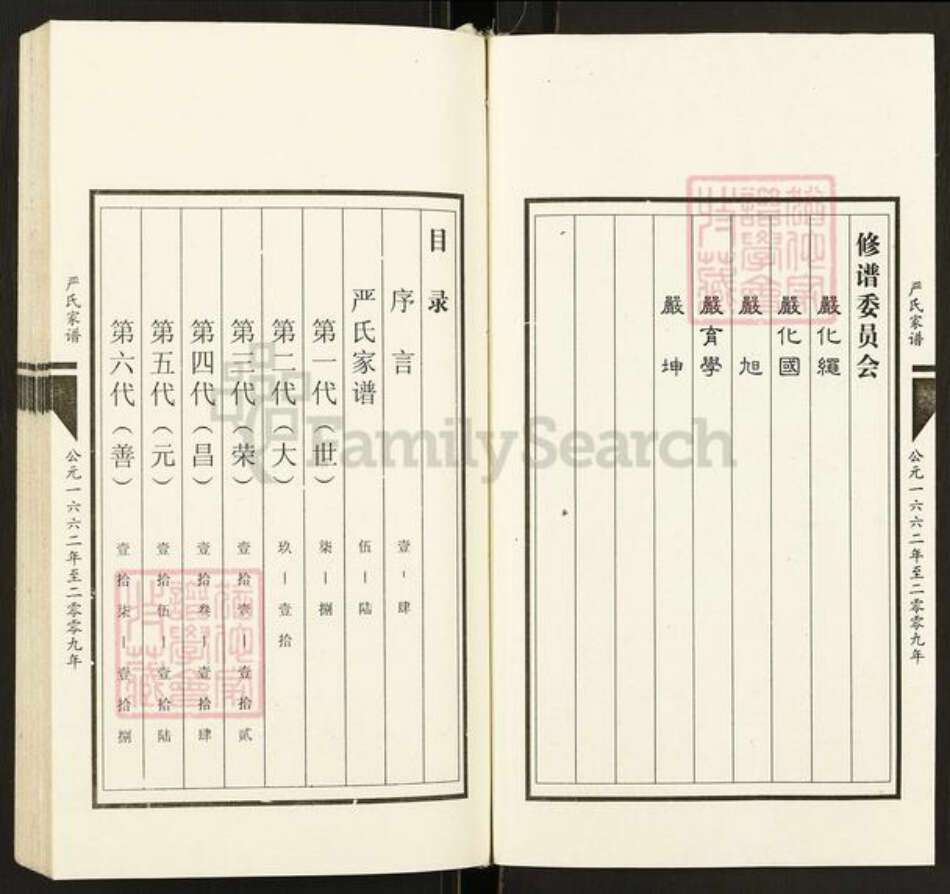 严氏家谱
公元一六六二年至二零零九年
修谱委员会
嚴化繩
嚴化國
嚴旭
嚴育學
嚴坤
目录
序言 壹-肆
严氏家谱 伍-陆
第一代(世) 柒-捌
第二代(大) 玖-壹拾
第三代(荣) 壹拾壹-壹拾贰
第四代(昌) 壹拾叁-壹拾肆
第五代(元) 壹拾伍-壹拾陆
第六代(善) 壹拾柒-壹拾捌
严氏家谱
公元一六六二年至二零零九年
FamilySearch